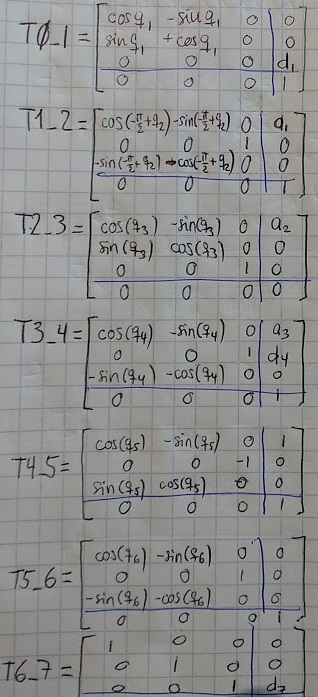 cosq₁ -sinq₁ 0 0
T0_1 = sinq₁ +cosq₁ 0 0
0 0 0 d₁
0 0 0 1
T1_2 = cos(-π/2+q₂) -sin(-π/2+q₂) 0 a₁
0 0 1 0
-sin(-π/2+q₂) -cos(-π/2+q₂) 0 0
0 0 0 1
T2_3 = cos(q₃) -sin(q₃) 0 a₂
sin(q₃) cos(q₃) 0 0
0 0 1 0
0 0 0 0
T3_4 = cos(q₄) -sin(q₄) 0 a₃
0 0 1 d₄
-sin(q₄) -cos(q₄) 0 0
0 0 0 1
cos(q₅) -sin(q₅) 0 1
T4_5 = 0 0 -1 0
sin(q₅) cos(q₅) 0 0
0 0 0 1
cos(q₆) -sin(q₆) 0 0
T5_6 = 0 0 1 0
-sin(q₆) -cos(q₆) 0 0
0 0 0 1
1 0 0 0
0 1 0 0
T6_7 = 0 0 1 d₇